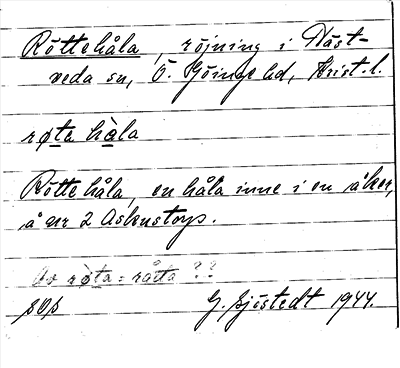 Röttehåla, röjning i Näst-
veda sn, Ö. Göinge hd, Krist. l.
røta håla
Röttehåla, en håla inne i en åker,
å nr 2
Av røta = råtta ??
G. Sjöstedt 1944.